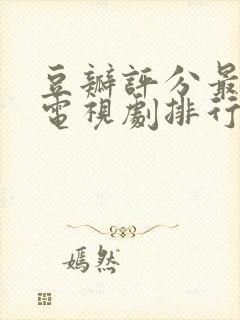 豆瓣評分最
電視劇排行
嫣然